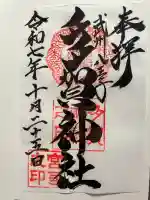 奉拝
武州八王子
多賀神社
令和七年十月二十五日